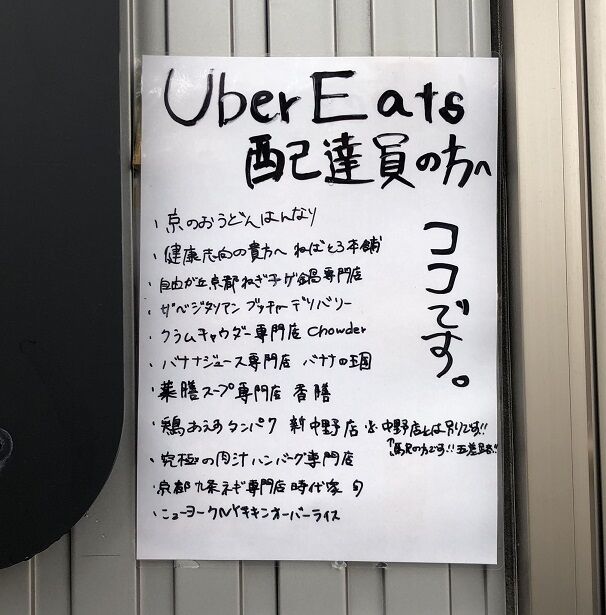 Uber Eats
配達員の方へ
ココです。
・京のおうどんはんなり
・健康志向の貴方へ ねばとろ本舗
・自由が丘京都ねぎ子ゲ鍋専門店
・ザベジタリアン ブッチャーデリバリー
・クラムチャウダー専門店 Chowder
・バナナジュース専門店 バナナの王国
・薬膳スープ専門店 香膳
・鶏あえすタンパク 新中野店 ※中野店とは別りです!!
の方です!!
・究極の肉汁ハンバーグ専門店
・京都九条ネギ専門店 時代家 旬
・ニューヨークNYチキンオーバーライス